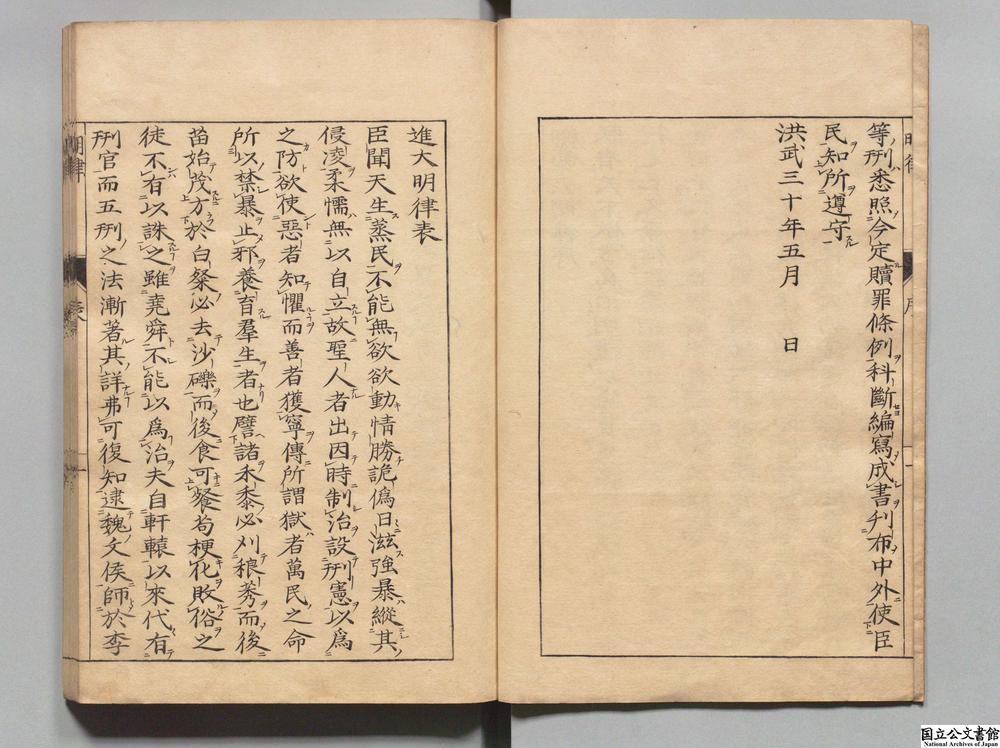 等刑悉照今定贖罪條例科斷編寫成書刋布中外使臣
民知所遵守
洪武三十年五月　　日
進大明律表
臣聞天生蒸民不能無欲欲動情勝詭偽日滋強暴縱其
侵凌柔懦無以自立故聖人者出因時制治設刑憲以爲
之防欲使惡者知懼而善者獲寧傳所謂獄者萬民之命
所以禁暴止邪養育羣生者也譬諸禾黍必刈稂莠而後
苗始茂方於白粲必去沙礫而後食可餐苟梗化敗俗之
徒不有以誅之雖堯舜不能以爲治夫自軒轅以來代有
刑官而五刑之法漸著其詳弗可復知逮魏文侯師於李
明律
序
一
明律
表
一
国立公文書館
National Archives of Japan